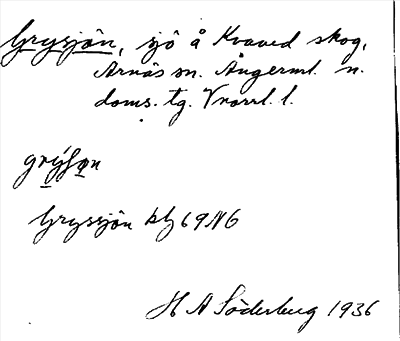 Grysjön, sjö å Kvaved skog,
Arnäs sn. Ångerml. n.
doms. tg. Vnorrl. l.
grýʃøn
Gryssjön bl 69 NG
H A Söderberg 1936